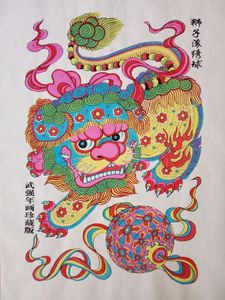 狮子滚绣球
武强年画珍藏版